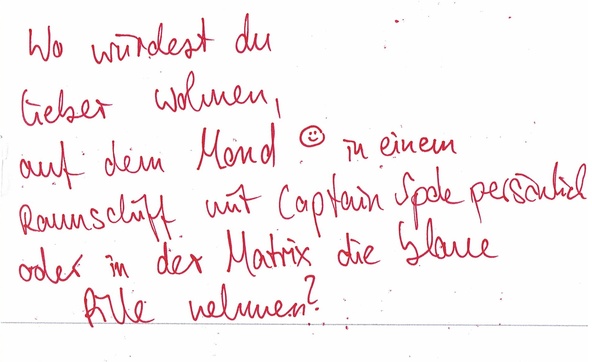 Wo würdest du
lieber wohnen,
auf dem Mond ☺ in einem
Raumschiff mit Captain Spok persönlich
oder in der Matrix die blaue
Pille nehmen?